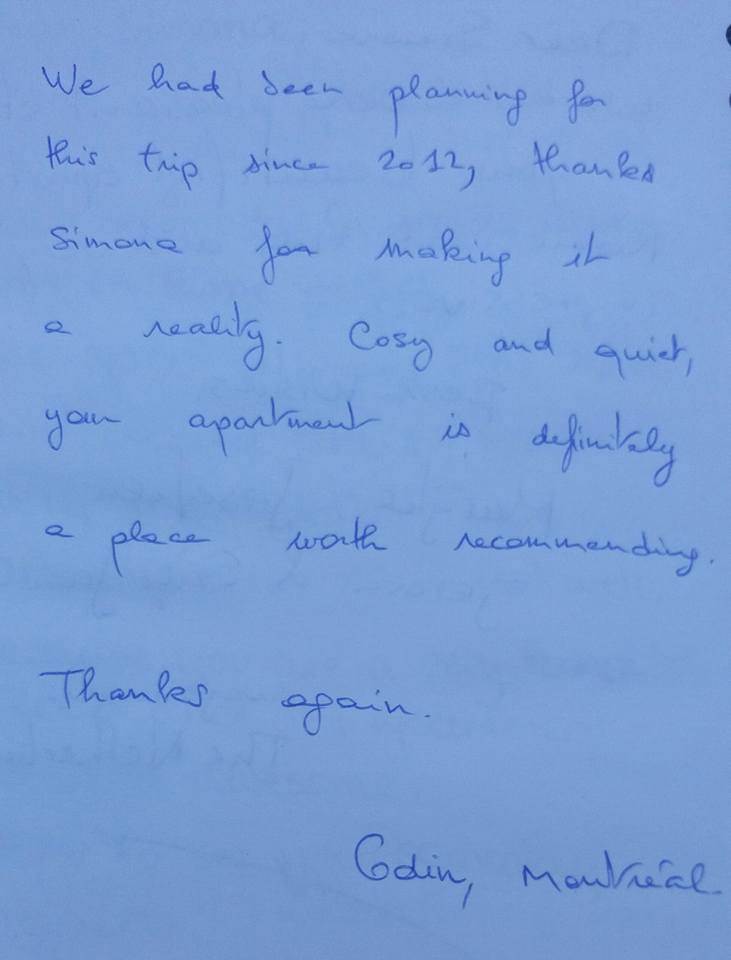 We had been planning for
this trip since 2012, thanks
Simona for making it
a reality. Cosy and quiet,
your apartment is definitely
a place worth recommending.
Thanks again.
Montréal